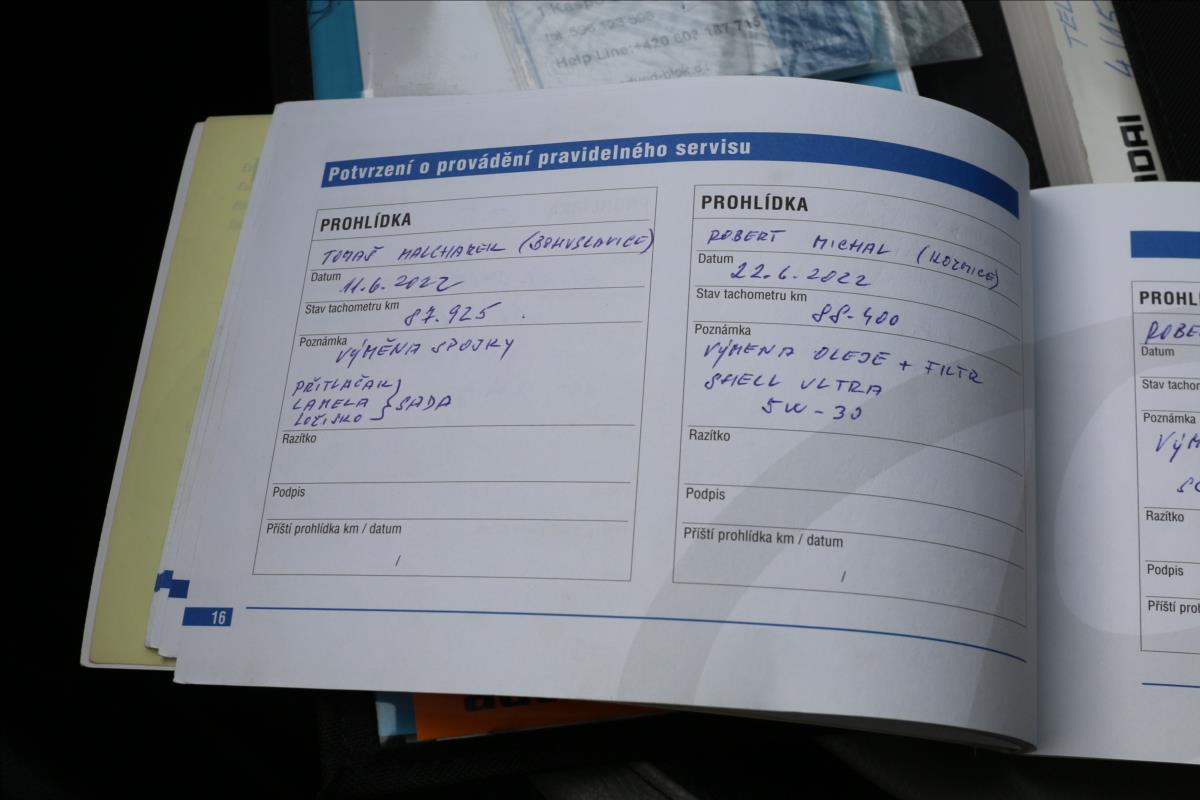 Tel. 596
Help Line:+420 602 187 715
TEL
4/15
Potvrzení o provádění pravidelného servisu
PROHLÍDKA
TOMAŠ MALCHAREK (BOHUSLAVICE)
Datum 11.6.2022
Stav tachometru km 87.925
Poznámka VÝMĚNA SPOJKY
PŘÍTLAČAK
LAMELA } SADA
LOŽISKO
Razítko
Podpis
Příští prohlídka km / datum
/
16
PROHLÍDKA
ROBERT MICHAL (KOZMICE)
Datum 22.6.2022
Stav tachometru km 88-400
Poznámka
VÝMENA OLEJE + FILTR
SHELL ULTRA
5W-30
Razítko
Podpis
Příští prohlídka km / datum
/
PROHL
ROBE
Datum
Stav tachor
Poznámka
VÝM
Razítko
Podpis
Příští prol